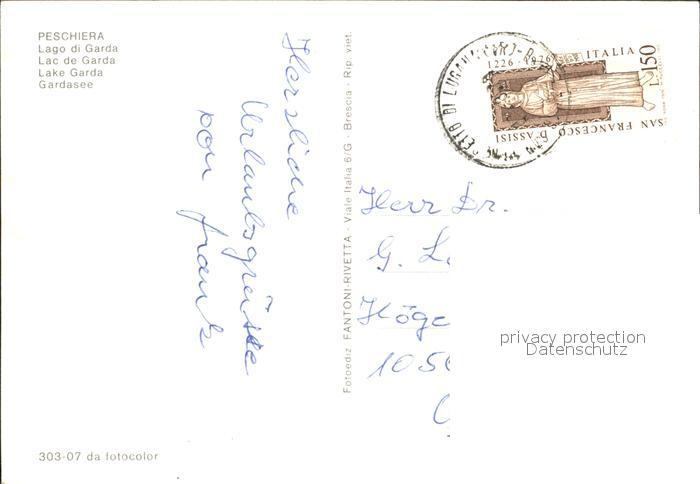 PESCHIERA
Lago di Garda
Lac de Garda
Lake Garda
Gardasee
Herzliche
Urlaubsgrüsse
von Frank
303-07 da fotocolor
Fotoediz. FANTONI-RIVETTA - Viale Italia 6/G - Brescia - Rip. viet.
1226-1976
ITALIA
L. 150
SAN FRANCESCO
D'ASSISI
Herr Dr.
G. L.
Höge
105
privacy protection
Datenschutz